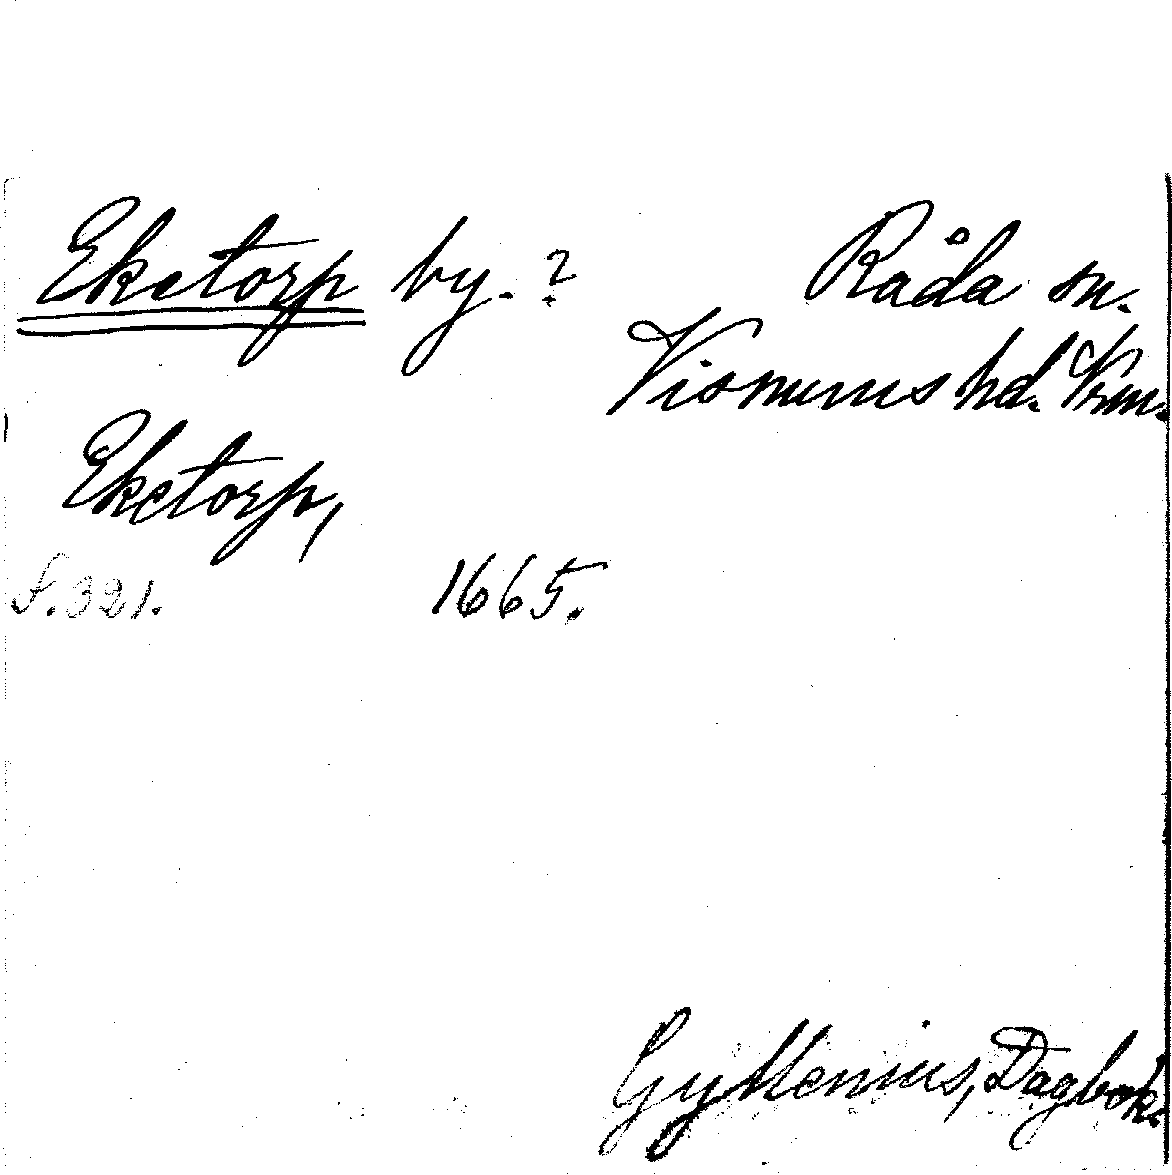 Eketorp by. ? Råda sn.
Visnums hd. Vrm.
Eketorp,
s. 321. 1665.
Gyllenius, Dagbok.